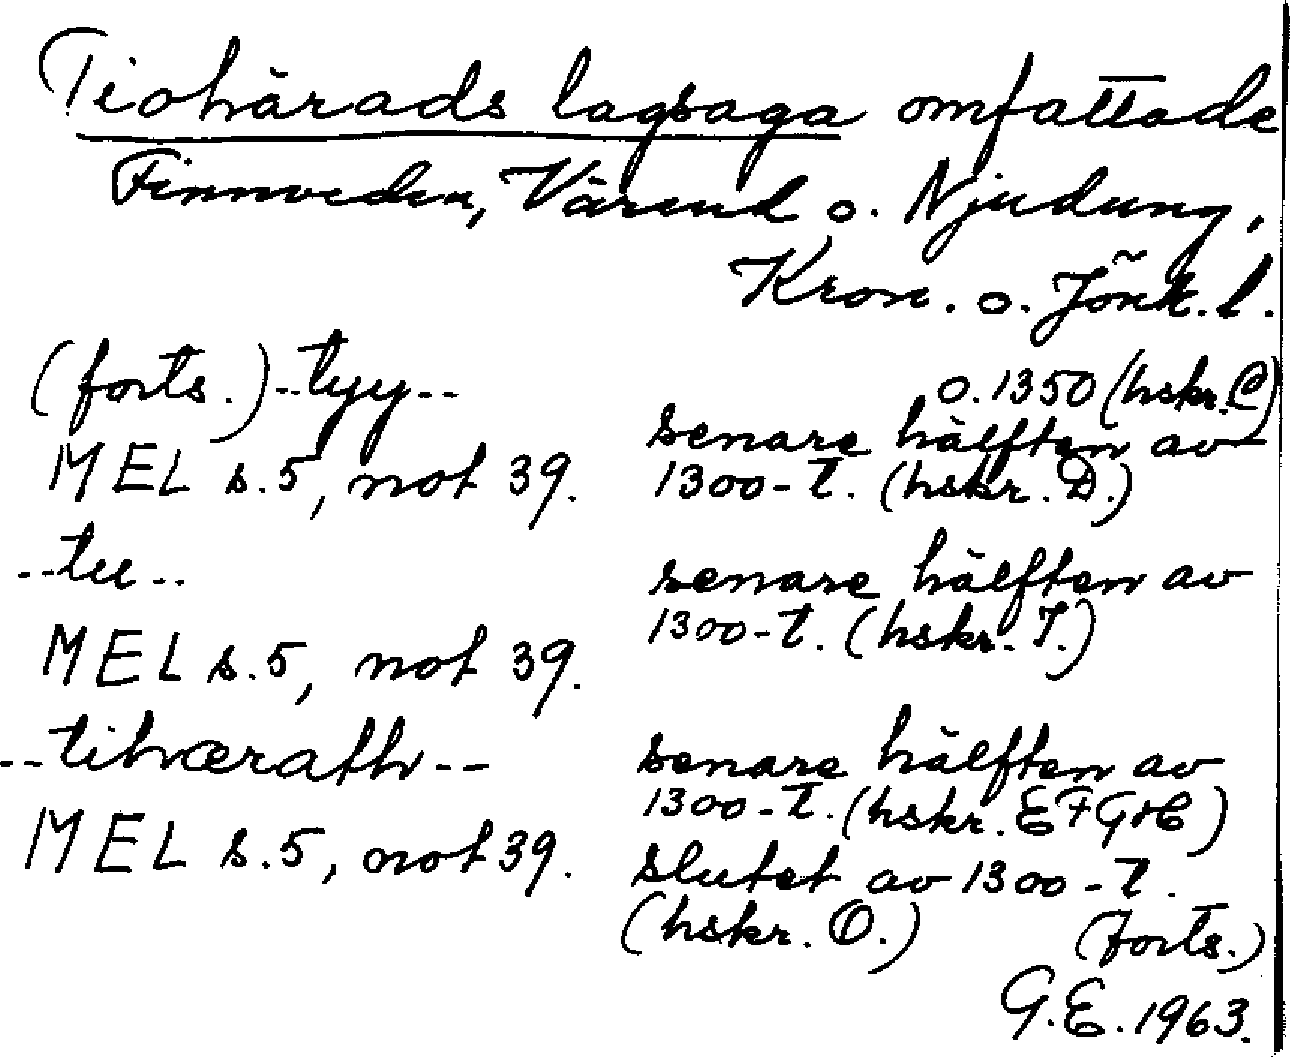 Tiohärads lagsaga omfattade
Finnveden, Värend o. Njudung,
Kron. o. Jönk. l.
(forts.) --tyy-- o. 1350 (hskr. C)
senare hälften av
MEL s. 5, not 39. 1300-t. (hskr. D.)
--tu-- senare hälften av
1300-t. (hskr. I.)
MEL s. 5, not 39.
--tihærath-- senare hälften av
1300-t. (hskr. EFGH)
MEL s. 5, not 39. slutet av 1300-t.
(hskr. O.) (forts.)
G.E. 1963.